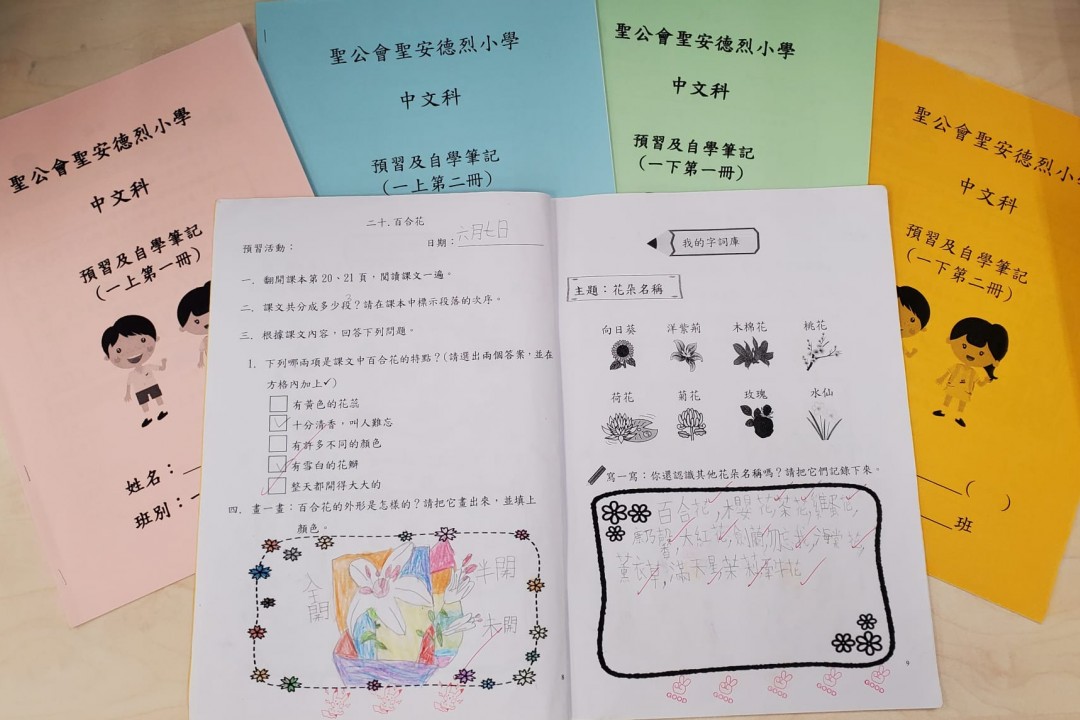 聖公會聖安德烈小學
中文科
預習及自學筆記
(一上第一冊)
姓名：
班別：
聖公會聖安德烈小學
中文科
預習及自學筆記
(一上第二冊)
聖公會聖安德烈小學
中文科
預習及自學筆記
(一下第一冊)
聖公會聖安德烈小學
中文科
預習及自學筆記
(一下第二冊)
( )
班
二十.百合花
預習活動：
日期：六月七日
一. 翻開課本第20、21頁，閱讀課文一遍。
二. 課文共分成多少段？請在課本中標示段落的次序。
三. 根據課文內容，回答下列問題。
1. 下列哪兩項是課文中百合花的特點？(請選出兩個答案，並在
方格內加上✓)
有黃色的花蕊
十分清香，叫人難忘
有許多不同的顏色
有雪白的花瓣
整天都開得大大的
四. 畫一畫：百合花的外形是怎樣的？請把它畫出來，並填上
顏色。
全開
半開
未開
8
我的字詞庫
主題：花朵名稱
向日葵 洋紫荊 木棉花 桃花
荷花 菊花 玫瑰 水仙
寫一寫：你還認識其他花朵名稱嗎？請把它們記錄下來。
百合花,櫻花,茶花,
康乃馨,大紅花,劍蘭,勿忘我,海棠花,
薰衣草,滿天星,茉莉,牽牛花
9
GOOD GOOD GOOD GOOD GOOD